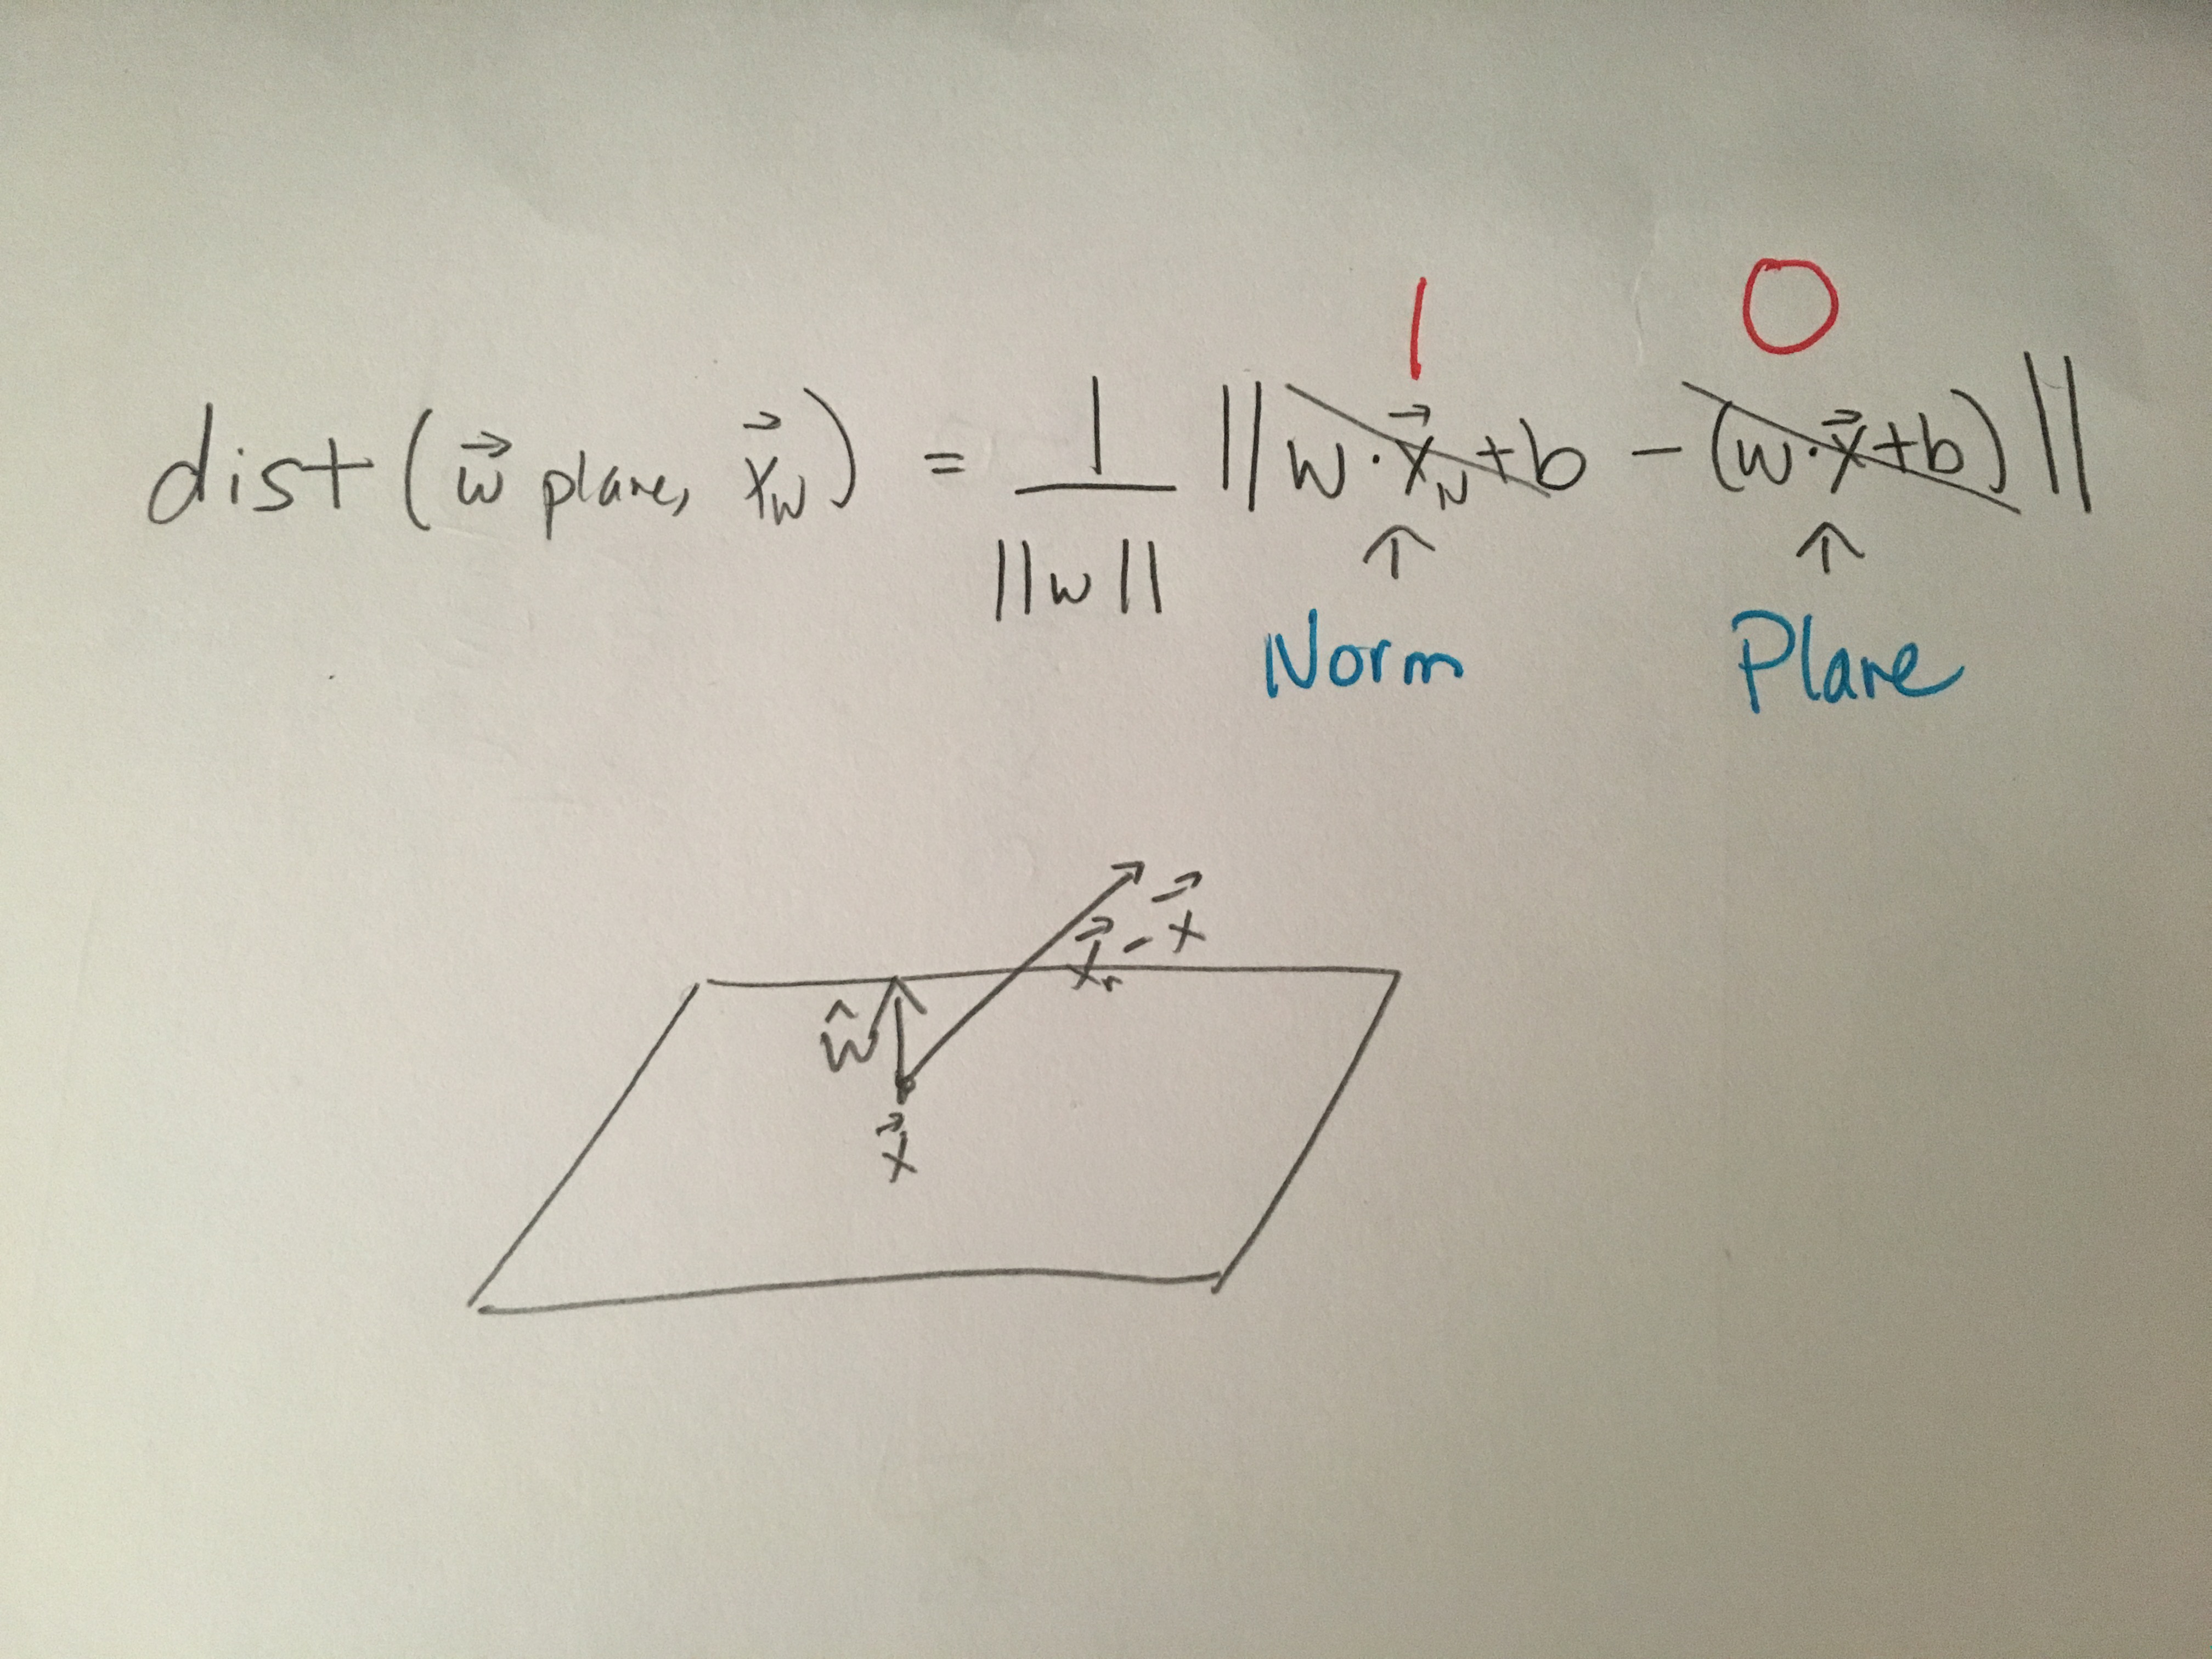 1 0
dist (w⃗ plane, x⃗ₙ) = 1/||w|| ||w · x⃗ₙ + b - (w · x⃗ + b)||
↑ ↑
Norm Plane
ŵ x⃗ₙ - x⃗
x⃗